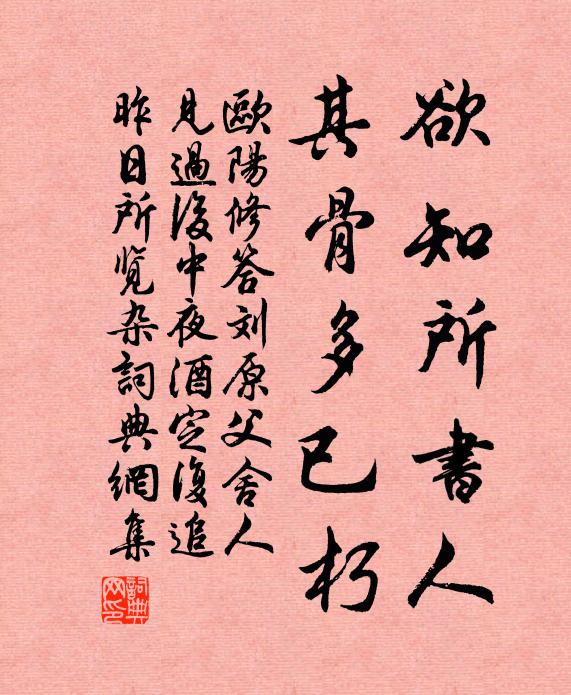 欲知所書人
其骨多已朽
歐陽修答刘原父舍人
見過後中夜酒定復追
昨日所覧杂詞典網集
詞典网印